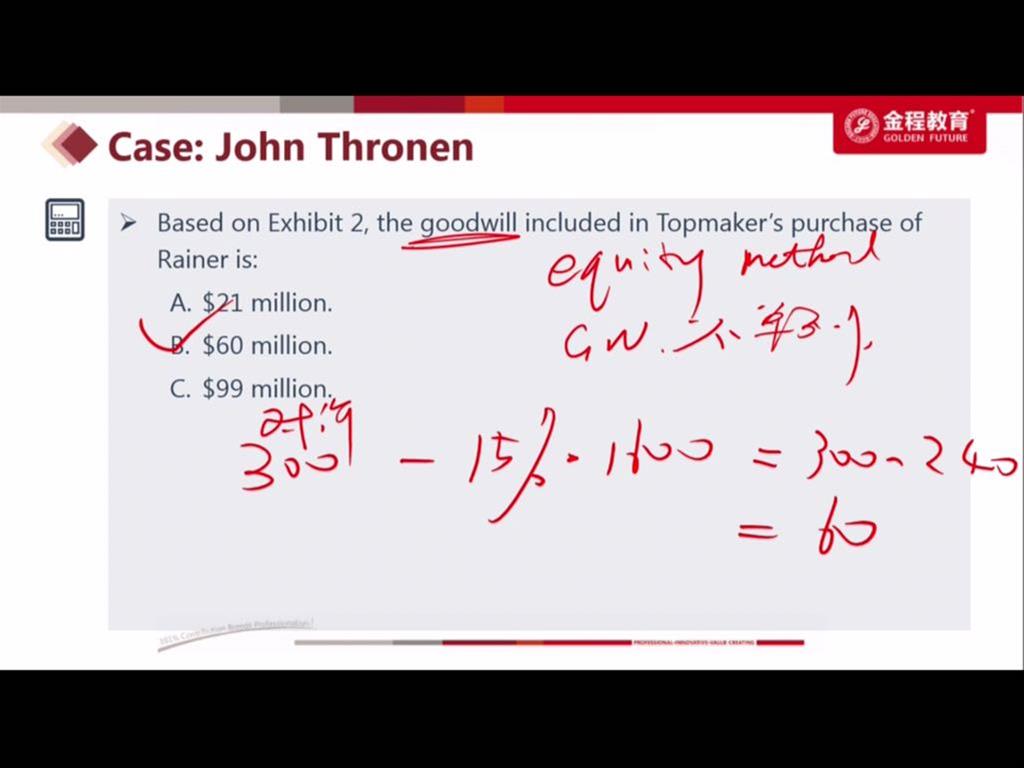 金程教育
GOLDEN FUTURE
Case: John Thronen
Based on Exhibit 2, the goodwill included in Topmaker's purchase of
Rainer is:
equity method
A. $21 million.
GW. 不
B. $60 million.
C. $99 million.
对价
300 - 15% · 1600 = 300 - 240
= 60
101% Contribution Breeds Professionalism!
PROFESSIONAL·INNOVATIVE·VALUE CREATING